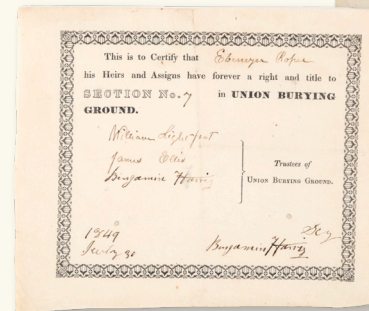 This is to Certify that Ebenezer Roper
his Heirs and Assigns have forever a right and title to
SECTION No. 7 in UNION BURYING
GROUND.
William Lightfoot
James Ellis
Benjamin Harris
Trustees of
UNION BURYING GROUND.
1849
July 30
Benjamin Harris